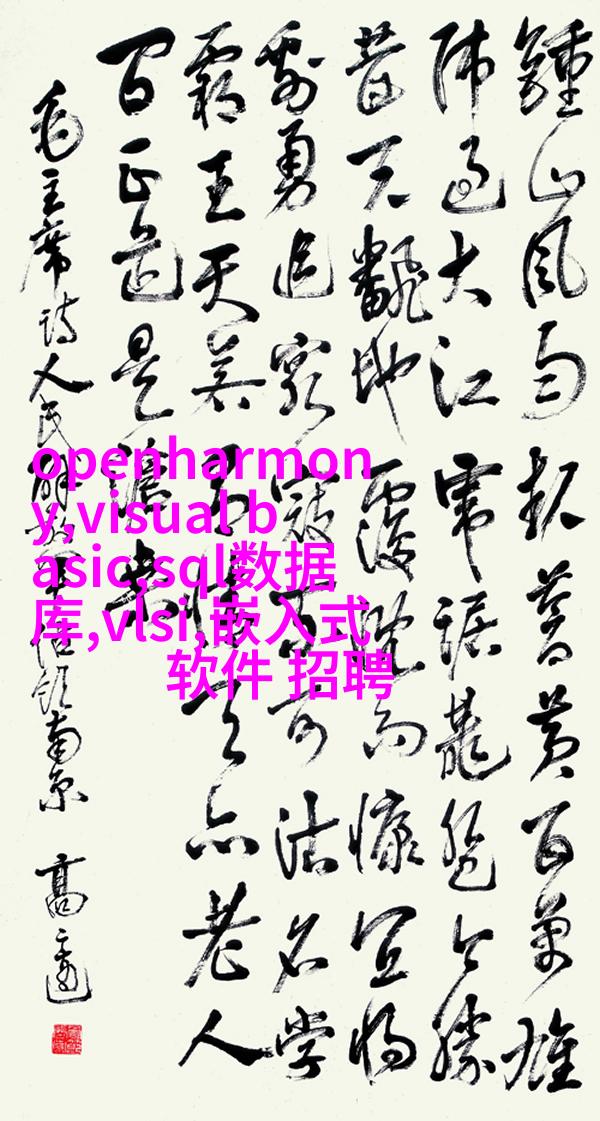 鍾山风雨起蒼黄百萬雄
师过大江虎踞龍盘今胜
昔天翻地覆慨而慷宜将
剩勇追穷寇不可沽名学
霸王天若有情天亦老人
间正道是滄桑
毛主席诗人民解放军占领南京 高
openharmon
y,visual b
asic,sql数据
库,vlsi,嵌入式
软件 招聘